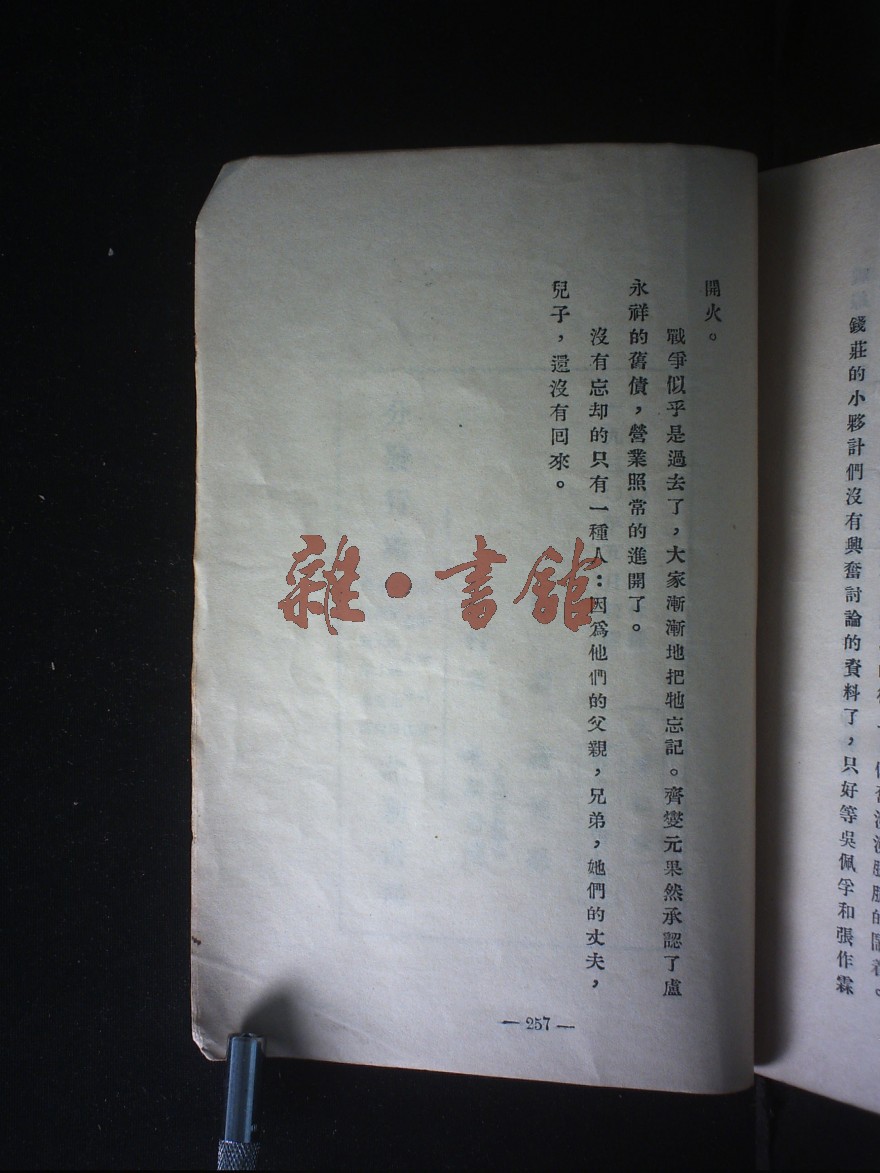 錢莊的小夥計們沒有興奮討論的資料了，只好等吳佩孚和張作霖
開火。
戰爭似乎是過去了，大家漸漸地把牠忘記。齊燮元果然承認了盧
永祥的舊債，營業照常的進開了。
沒有忘却的只有一種人：因爲他們的父親，兄弟，她們的丈夫，
兒子，還沒有回來。
— 257 —
雜·書館